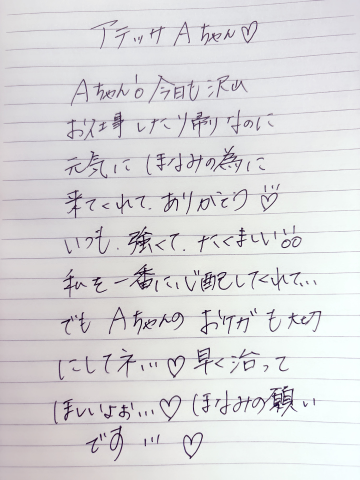 アテッサ Aちゃん♡
Aちゃん!! 今日も沢山
お仕事したり帰りなのに
元気に ほなみの為に
来てくれて、ありがとう♡
いつも、強くて、たくましい!!
私を一番に心配してくれて...
でも Aちゃんの おケガも大切
にしてネ...♡ 早く治って
ほしいよぉ...♡ ほなみの願い
です ... ♡